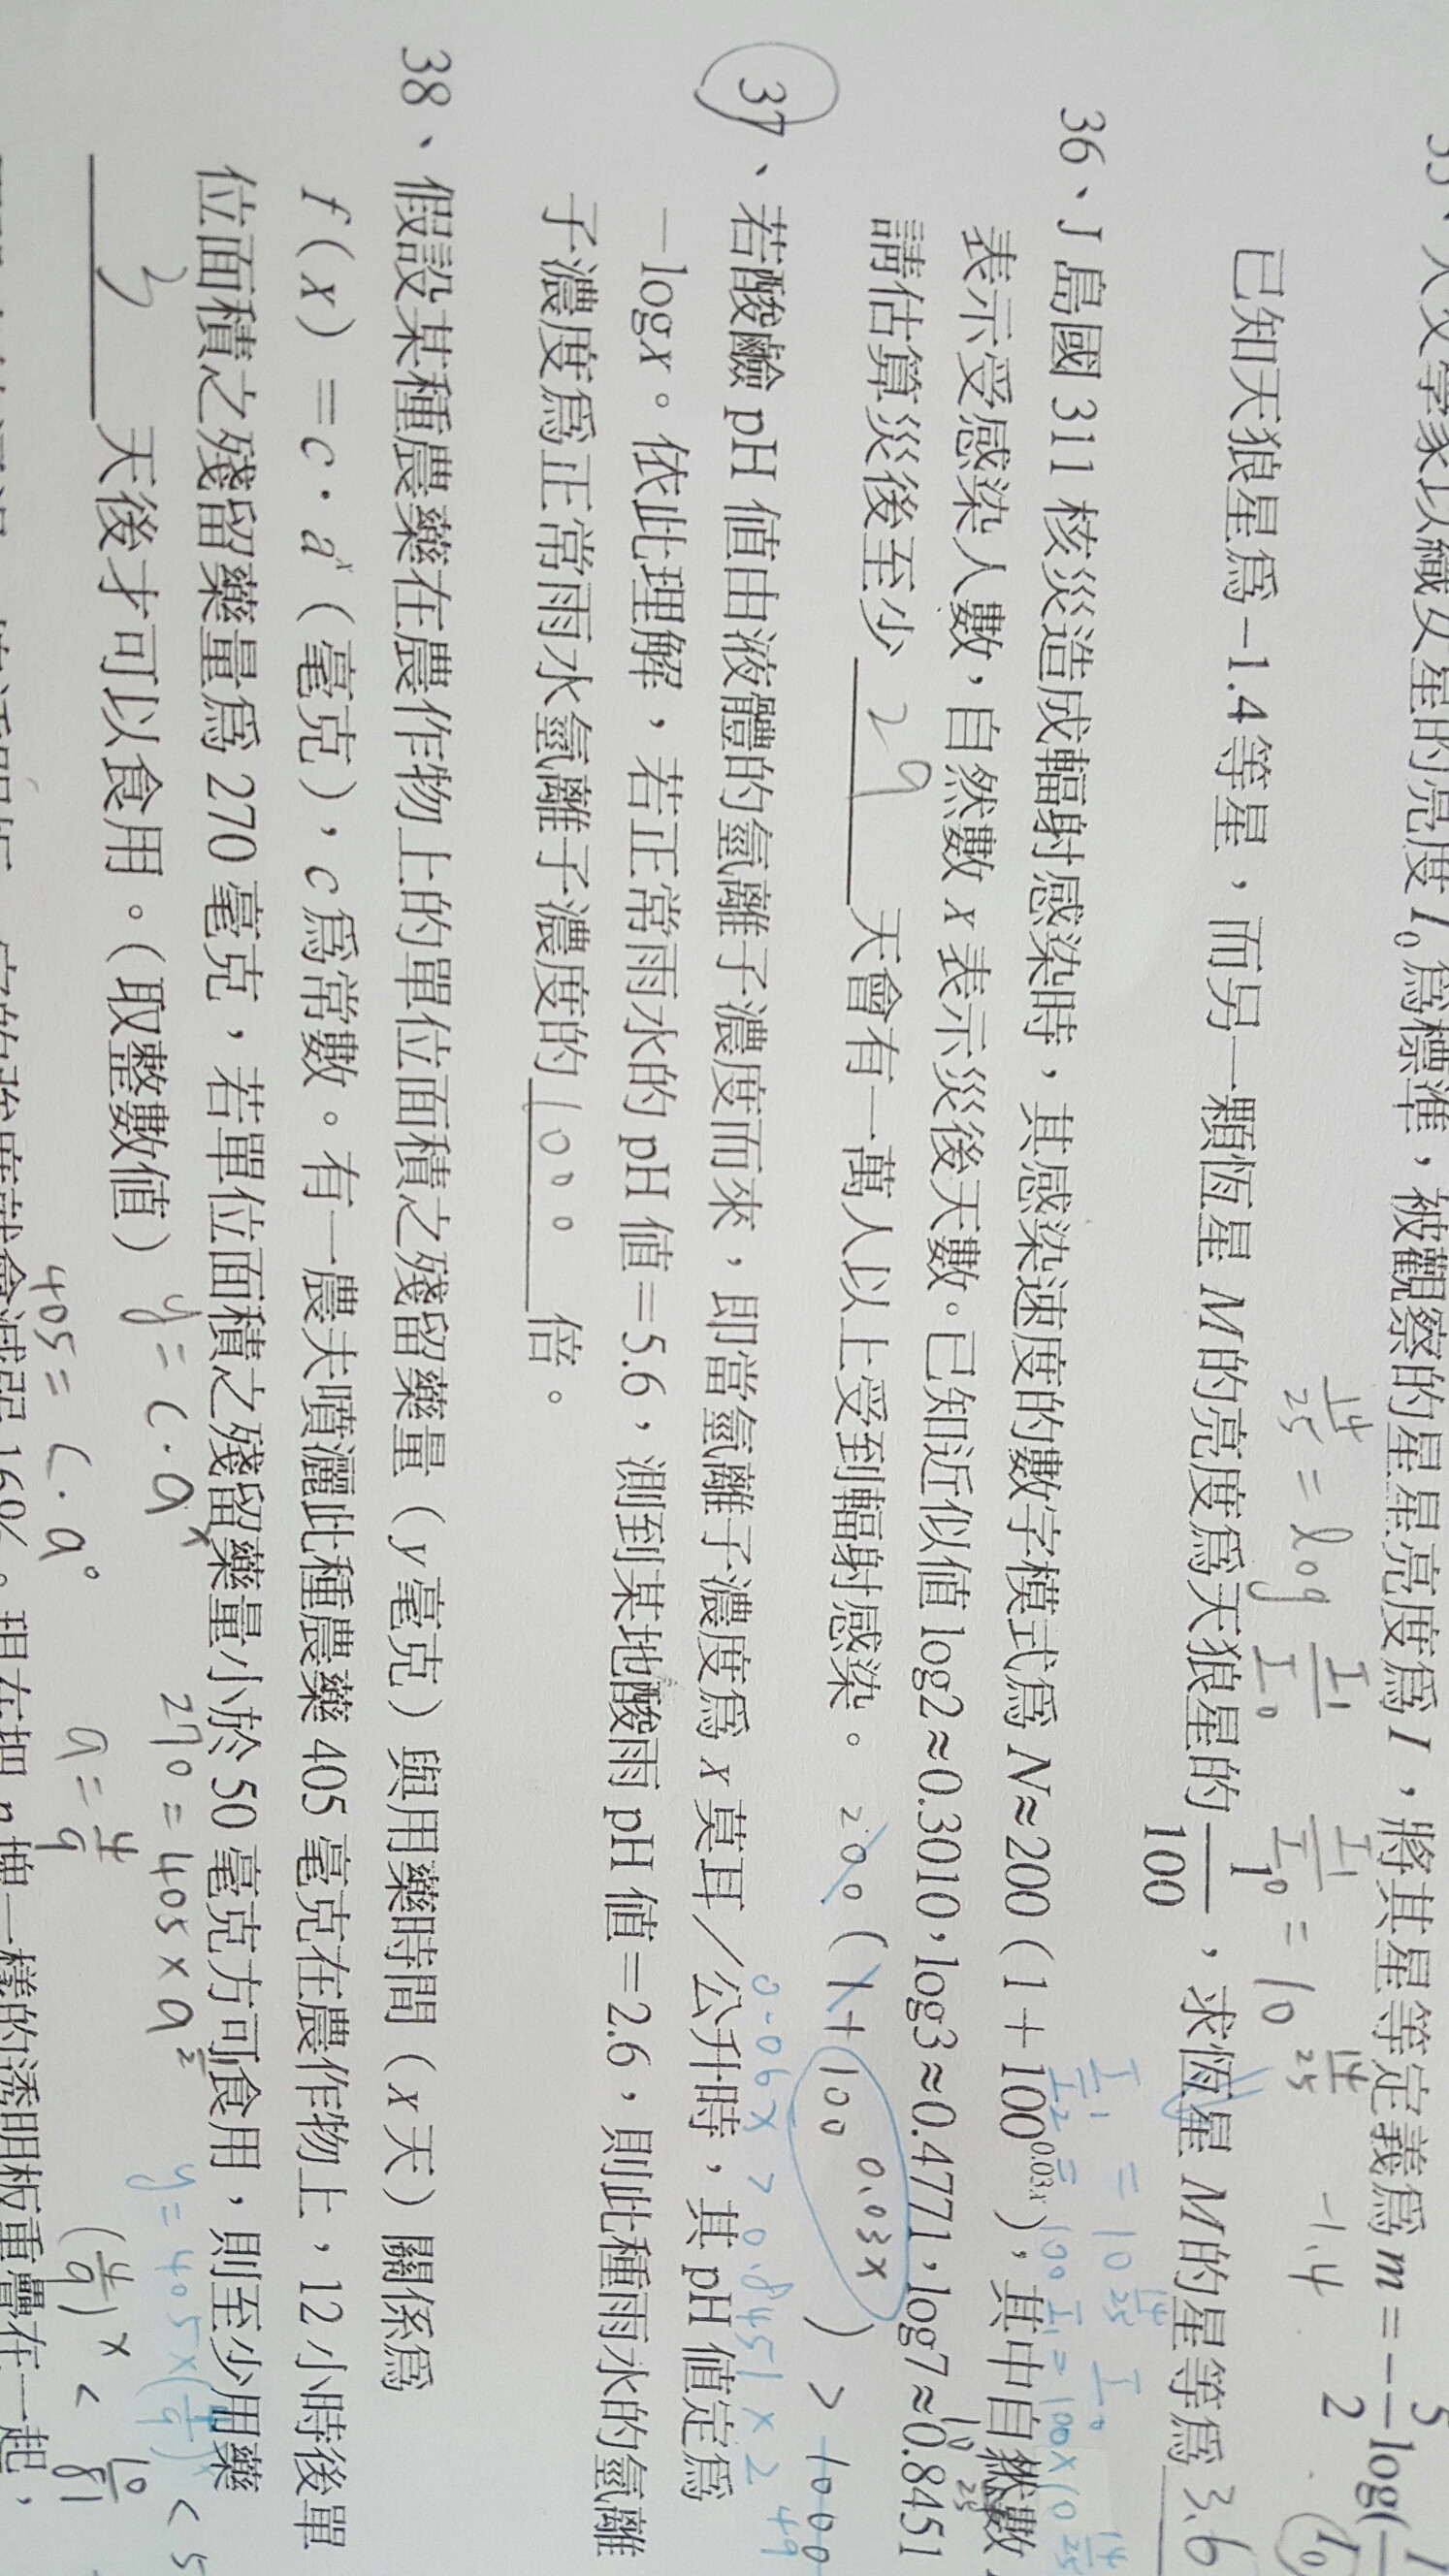 天文學家以織女星的亮度 I₀ 爲標準，被觀察的星星亮度爲 I，將其星等定義爲 m＝−5/2 log(
14/25 = log I₁/I₀
I₁/I₀ = 10^(14/25)
-1.4
已知天狼星爲 −1.4 等星，而另一顆恆星 M 的亮度爲天狼星的 1/100，求恆星 M 的星等爲 3.6
36、J 島國 311 核災造成輻射感染時，其感染速度的數字模式爲 N≈200（1＋100^(0.03x)），其中自然數
表示受感染人數，自然數 x 表示災後天數。已知近似值 log2≈0.3010，log3≈0.4771，log7≈0.8451
請估算災後至少 29 天會有一萬人以上受到輻射感染。
200 (1+100^(0.03x)) > 10000
0.06x > 0.8451×2
49
37、若酸鹼 pH 值由液體的氫離子濃度而來，即當氫離子濃度爲 x 莫耳／公升時，其 pH 值定爲
－logx。依此理解，若正常雨水的 pH 值＝5.6，測到某地酸雨 pH 值＝2.6，則此種雨水的氫離
子濃度爲正常雨水氫離子濃度的 1000 倍。
38、假設某種農藥在農作物上的單位面積之殘留藥量（y 毫克）與用藥時間（x 天）關係爲
f(x)＝c．aˣ（毫克），c 爲常數。有一農夫噴灑此種農藥 405 毫克在農作物上，12 小時後單
位面積之殘留藥量爲 270 毫克，若單位面積之殘留藥量小於 50 毫克方可食用，則至少用藥
3 天後才可以食用。（取整數值）
y = c·aˣ
270 = 405×a^(1/2)
y = 405×(4/9)ˣ < 5
405 = c·a⁰
a = 4/9
(4/9)ˣ < 10/81
會減弱 16%。現在把 n 塊一樣的透明板重疊在一起，